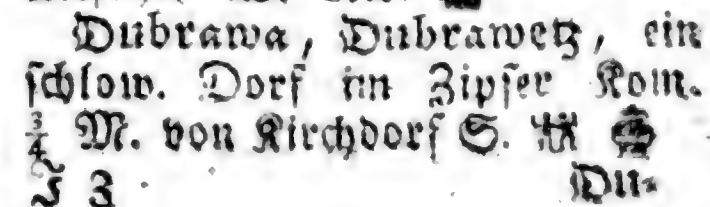 Dubrawa, Dubrawetz, ein
schlow. Dorf im Zipser Kom.
¾ M. von Kirchdorf S.
Du-